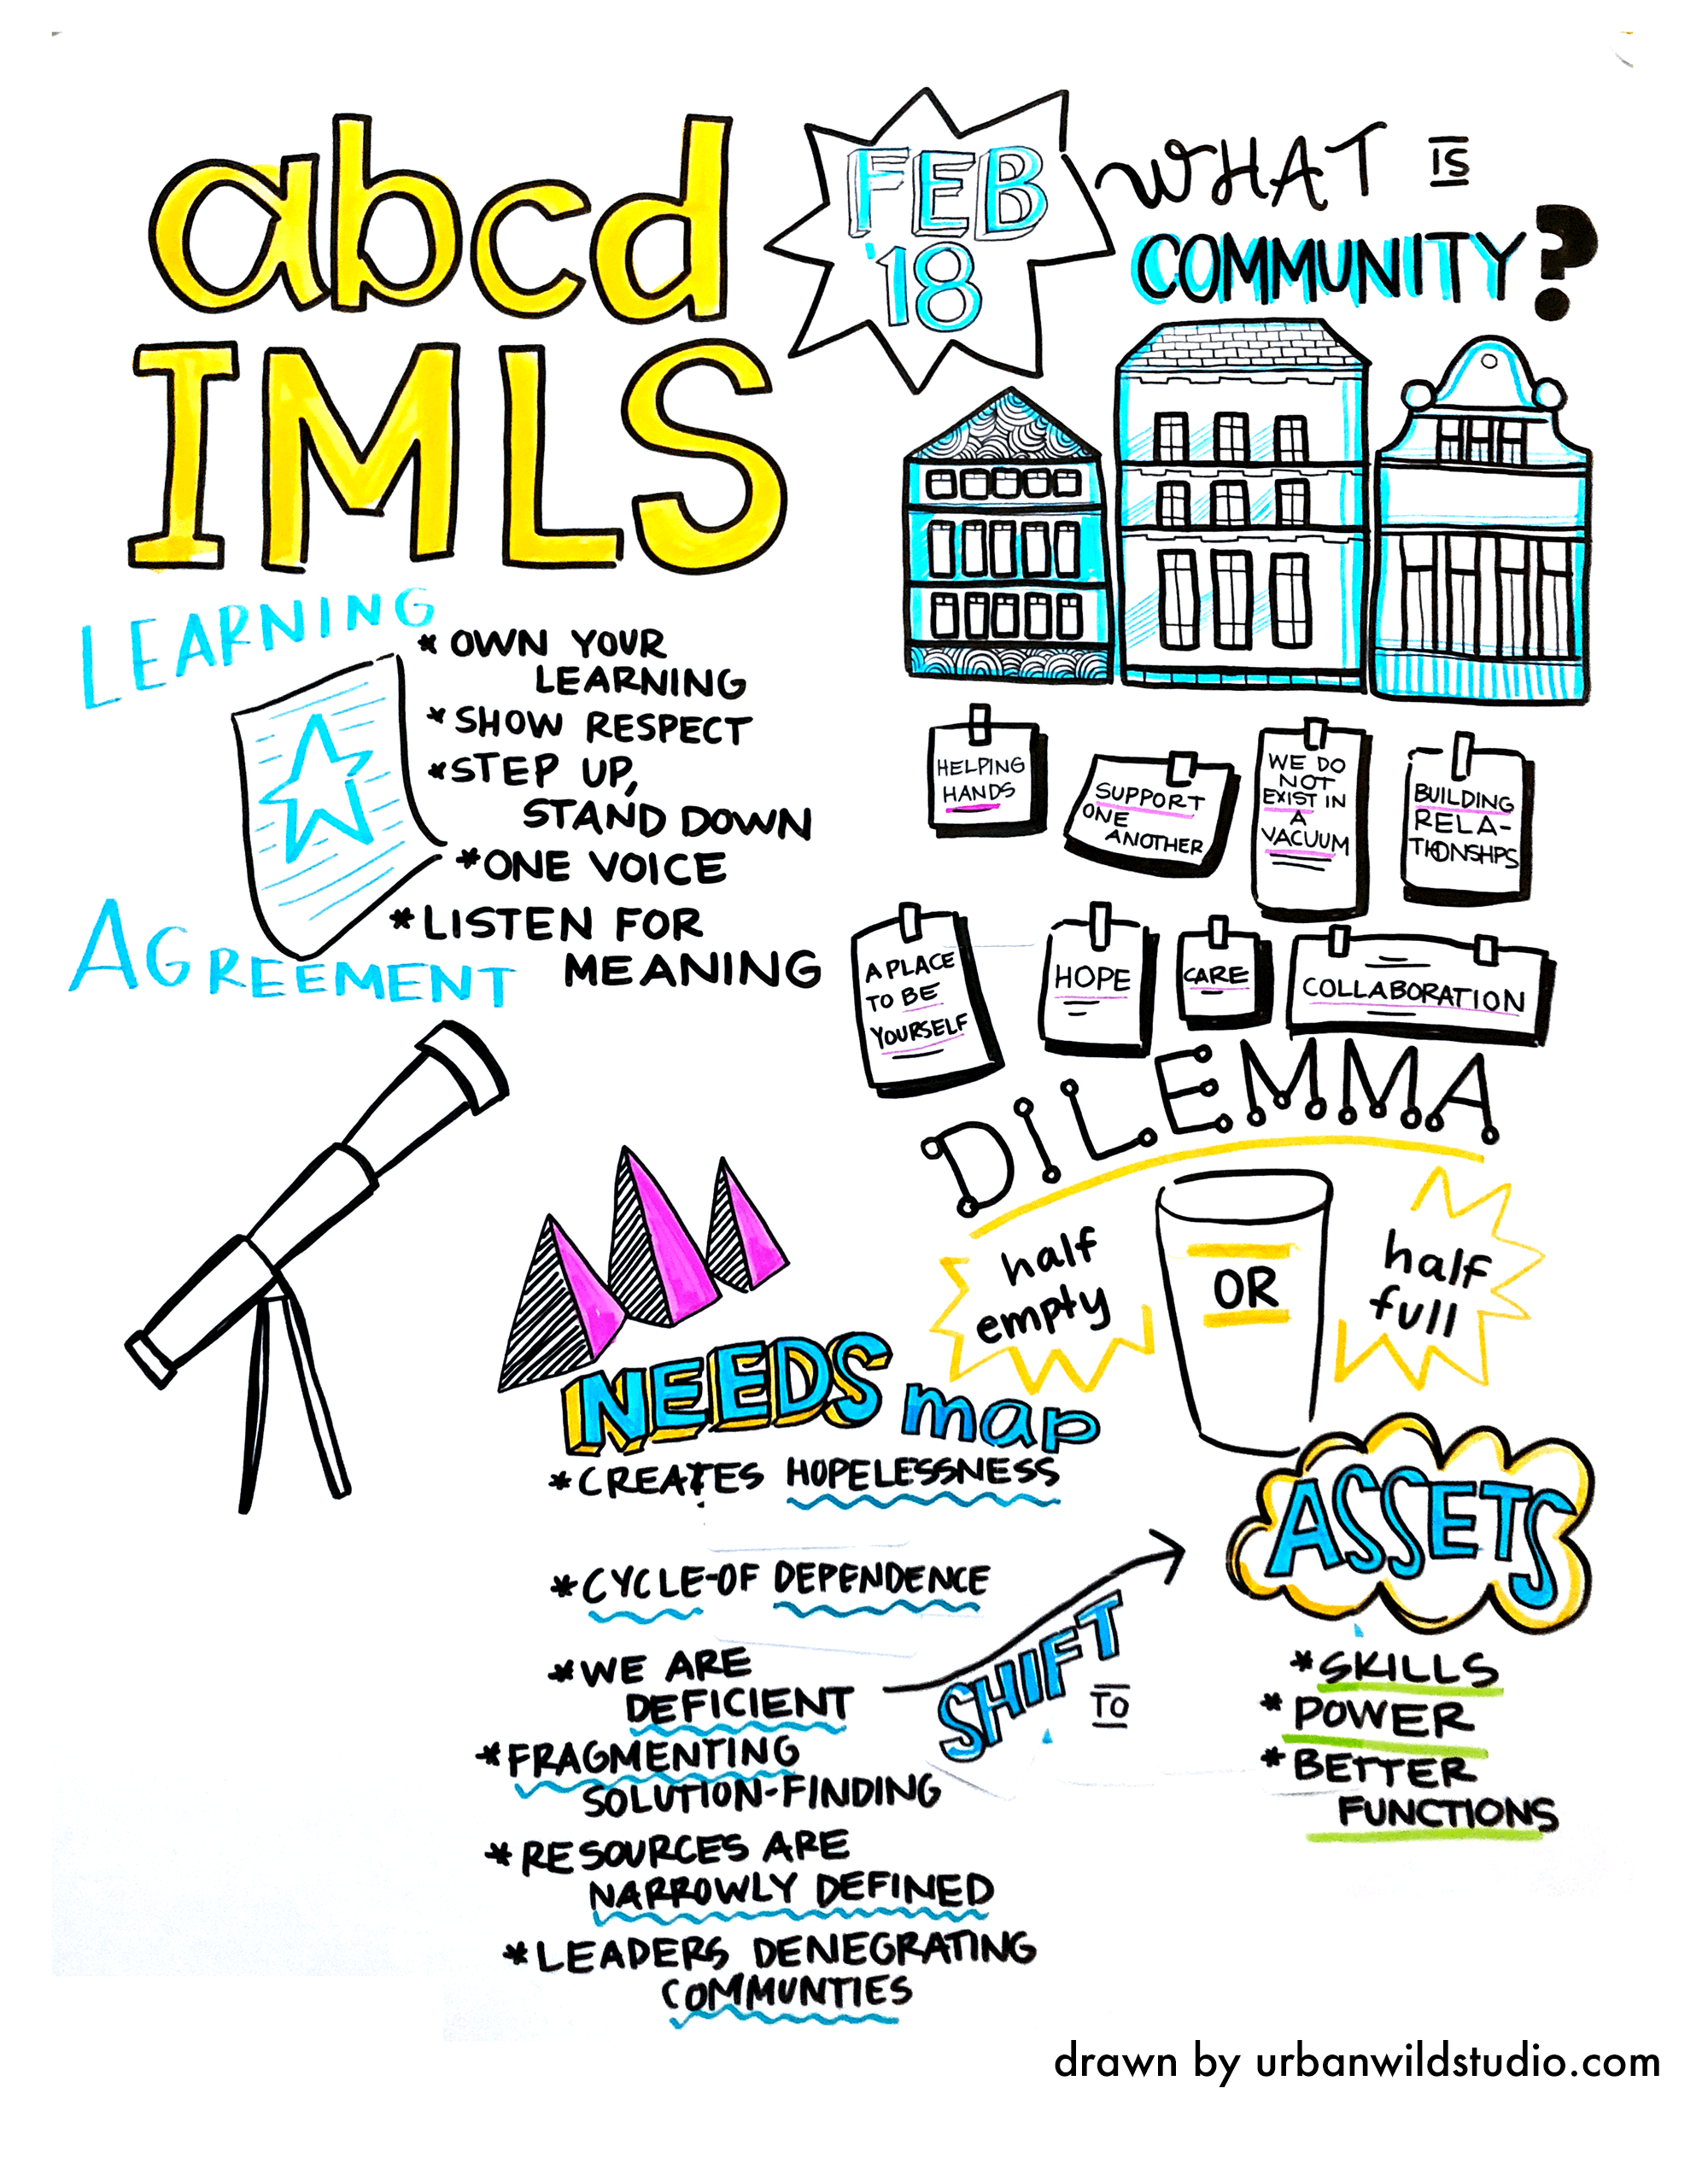 abcd
IMLS
FEB
'18
WHAT IS
COMMUNITY?
LEARNING
AGREEMENT
* OWN YOUR
LEARNING
* SHOW RESPECT
* STEP UP,
STAND DOWN
* ONE VOICE
* LISTEN FOR
MEANING
HELPING
HANDS
SUPPORT
ONE
ANOTHER
WE DO
NOT
EXIST IN
A
VACUUM
BUILDING
RELA-
TIONSHPS
A PLACE
TO BE
YOURSELF
HOPE
CARE
COLLABORATION
DILEMMA
half
empty
OR
half
full
NEEDS map
* CREATES HOPELESSNESS
* CYCLE-OF DEPENDENCE
* WE ARE
DEFICIENT
* FRAGMENTING
SOLUTION-FINDING
* RESOURCES ARE
NARROWLY DEFINED
* LEADERS DENEGRATING
COMMUNTIES
SHIFT
TO
ASSETS
* SKILLS
* POWER
* BETTER
FUNCTIONS
drawn by urbanwildstudio.com